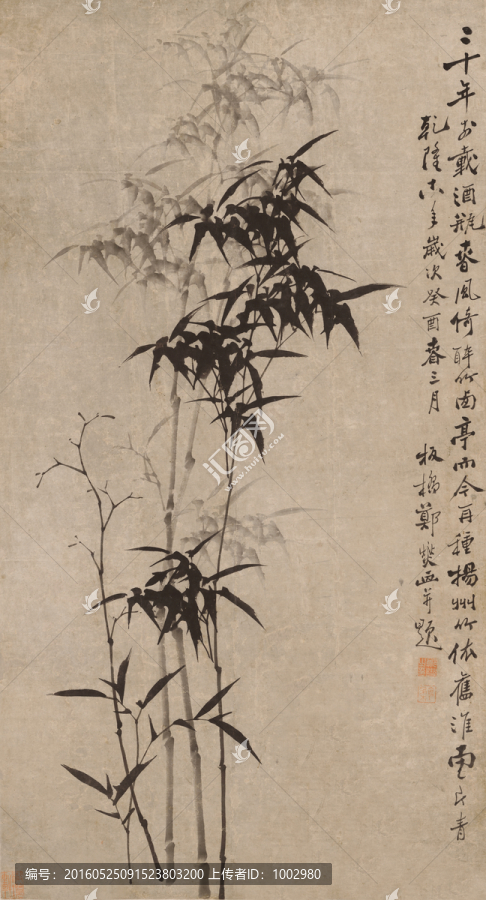 二十年前載酒瓶春風倚醉竹西亭而今再種揚州竹依舊淮南一片青
乾隆十八年歲次癸酉春三月
板橋鄭燮畫并題
汇图网
www.huitu.com
编号:20160525091523803200 上传者ID:1002980